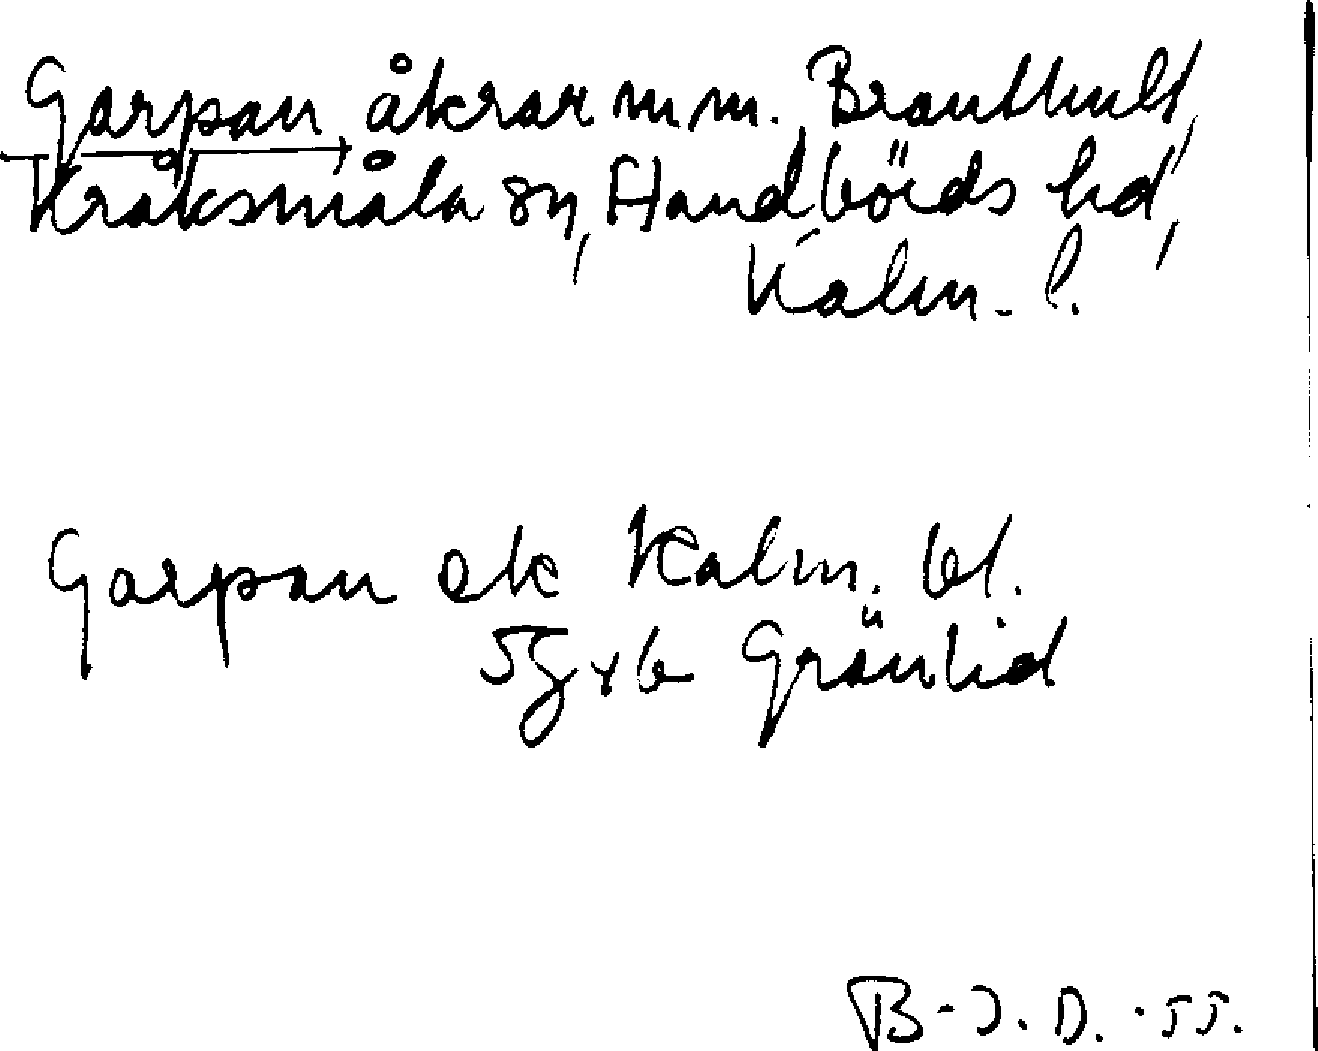 Garpan, åkrar m.m. Branthult,
Kråksmåla sn, Handbörds hd,
Kalm. l.
Garpan ek Kalm. bl.
5g x b Gränlid
B-J. D. -55.